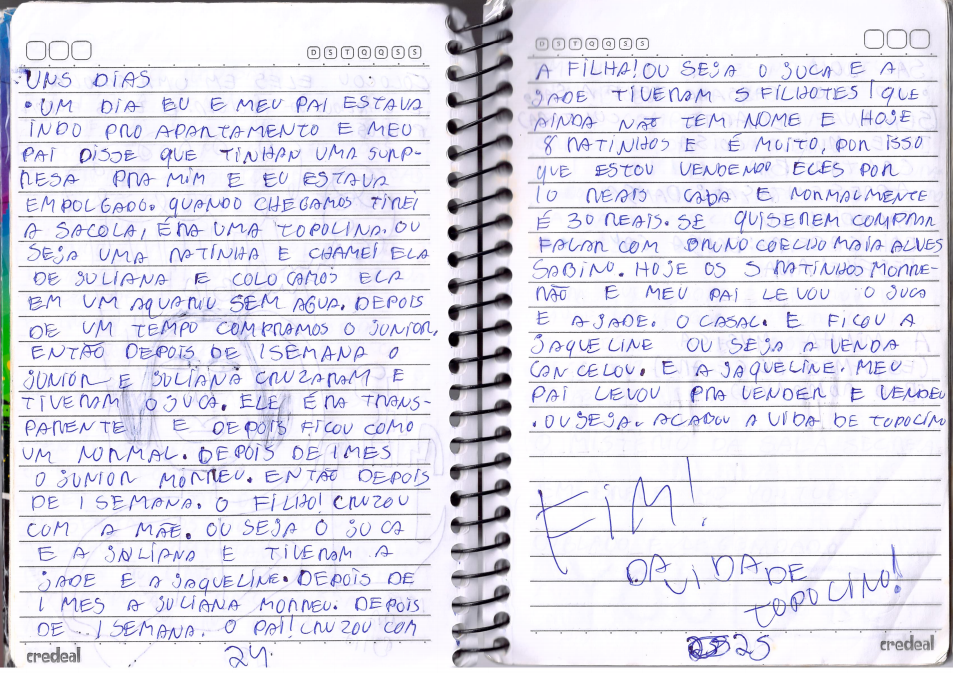 D S T Q Q S S
UNS DIAS
• UM DIA EU E MEU PAI ESTAVA
INDO PRO APARTAMENTO E MEU
PAI DISSE QUE TINHAN UMA SURP-
RESA PRA MIM E EU ESTAVA
EMPOLGADO. QUANDO CHEGAMOS TIREI
A SACOLA, ÉRA UMA TOPOLINA. OU
SEJA UMA RATINHA E CHAMEI ELA
DE JULIANA E COLOCAMOS ELA
EM UM AQUARIU SEM AGUA. DEPOIS
DE UM TEMPO COMPRAMOS O JUNIOR,
ENTÃO DEPOIS DE 1 SEMANA O
JUNIOR E JULIANA CRUZARAM E
TIVERAM O JUCA. ELE ÉRA TRANS-
PARENTE E DEPOIS FICOU COMO
UM NORMAL. DEPOIS DE 1 MES
O JUNIOR MORREU. ENTÃO DEPOIS
DE 1 SEMANA. O FILHO! CRUZOU
COM A MÃE. OU SEJA O JUCA
E A JULIANA E TIVERAM A
JADE E A JAQUELINE. DEPOIS DE
1 MES A JULIANA MORREU. DEPOIS
DE 1 SEMANA. O PAI! CRUZOU COM
credeal
24.
D S T Q Q S S
A FILHA! OU SEJA O JUCA E A
JADE TIVERAM 5 FILHOTES! QUE
AINDA NÃO TEM NOME E HOJE
8 RATINHOS E É MUITO, POR ISSO
QUE ESTOU VENDENDO ELES POR
10 REAIS CADA E NORMALMENTE
É 30 REAIS. SE QUISEREM COMPRAR
FALAR COM BRUNO COELHO MAIA ALVES
SABINO. HOJE OS 5 RATINHOS MORRE-
RÃO E MEU PAI LEVOU O JUCA
E A JADE. O CASAL. E FICOU A
JAQUELINE OU SEJA A VENDA
CANCELOU. E A JAQUELINE. MEU
PAI LEVOU PRA VENDER E VENDEU
. OU SEJA. ACABOU A VIDA DE TOPOLINO
FIM!
DA VIDA DE
TOPOLINO!
25
credeal